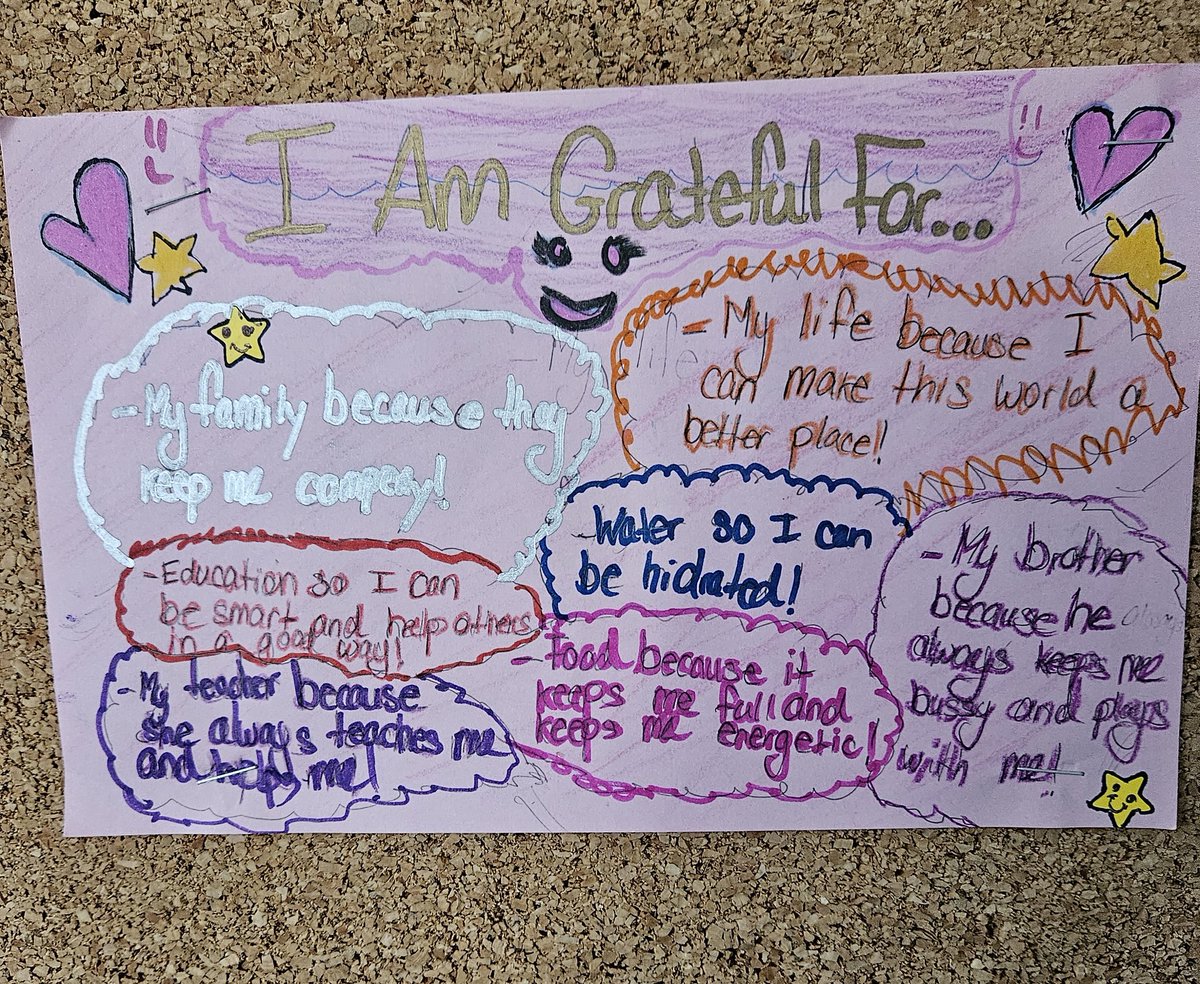 I Am Grateful For...
- My family because they
keep me compeny!
- My life because I
can make this world a
better place!
- Water so I can
be hidrated!
- Education so I can
be smart and help others
in a good way!
- My brother
because he
always keeps me
bussy and plays
with me!
- My teacher because
she always teaches me
and helps me!
- Food because it
keeps me full and
keeps me energetic!